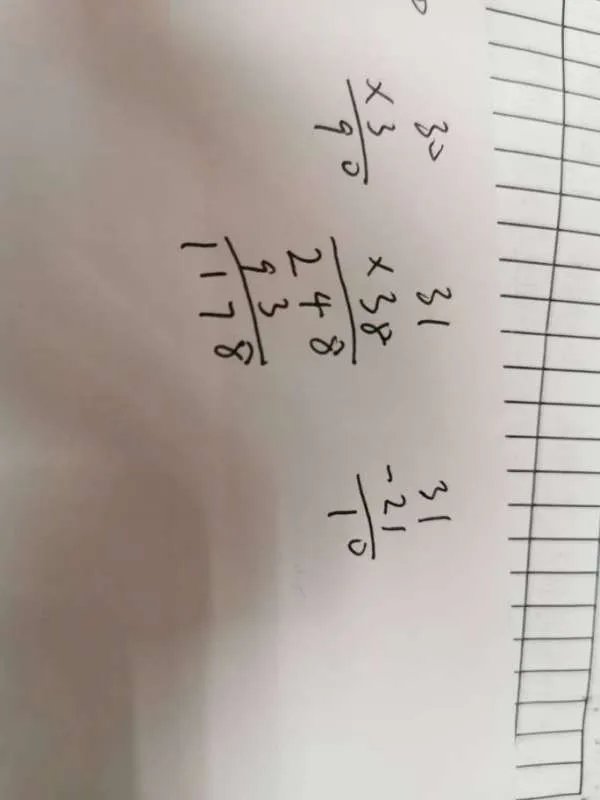 30
×3
90
31
×38
248
93
1178
31
-21
10